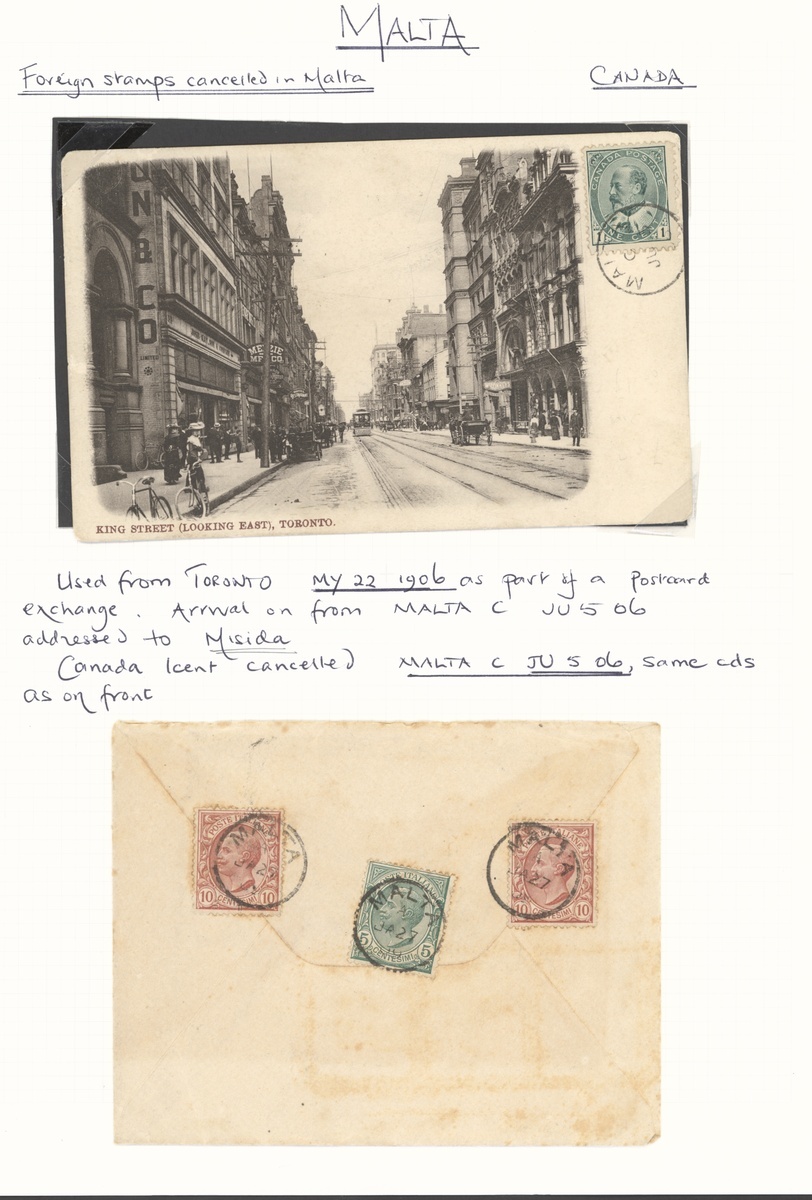 MALTA
Foreign stamps cancelled in Malta
CANADA
CANADA POSTAGE
ONE CENT
1 1
MAL
JU 5
N & CO
LIMITED
MFG. CO.
KING STREET (LOOKING EAST), TORONTO.
Used from TORONTO MY 22 1906 as part of a Postcard
exchange. Arrival on from MALTA C JU 5 06
addressed to Misida
Canada 1cent cancelled MALTA C JU 5 06, same cds
as on front
POSTE
MALTA
JA 27
10 CENTESIMI 10
POSTE ITALIANE
MALTA
JA 27
5 CENTESIMI 5
ITALIANE
MALTA
JA 27
10 CENTESIMI 10